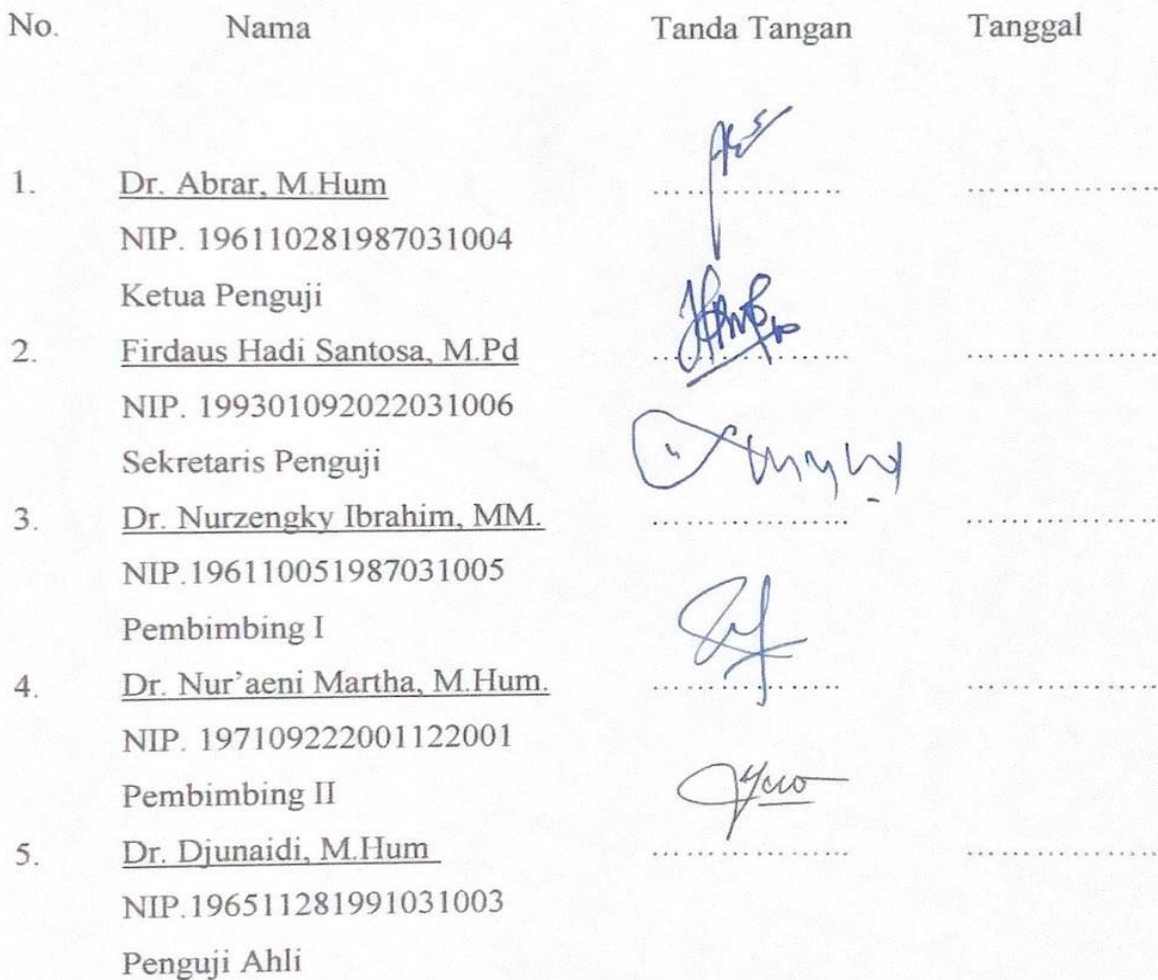 No. Nama Tanda Tangan Tanggal
1. Dr. Abrar, M.Hum ................... ...................
NIP. 196110281987031004
Ketua Penguji
2. Firdaus Hadi Santosa, M.Pd ................... ...................
NIP. 199301092022031006
Sekretaris Penguji
3. Dr. Nurzengky Ibrahim, MM. ................... ...................
NIP.196110051987031005
Pembimbing I
4. Dr. Nur’aeni Martha, M.Hum. ................... ...................
NIP. 197109222001122001
Pembimbing II
5. Dr. Djunaidi, M.Hum ................... ...................
NIP.196511281991031003
Penguji Ahli